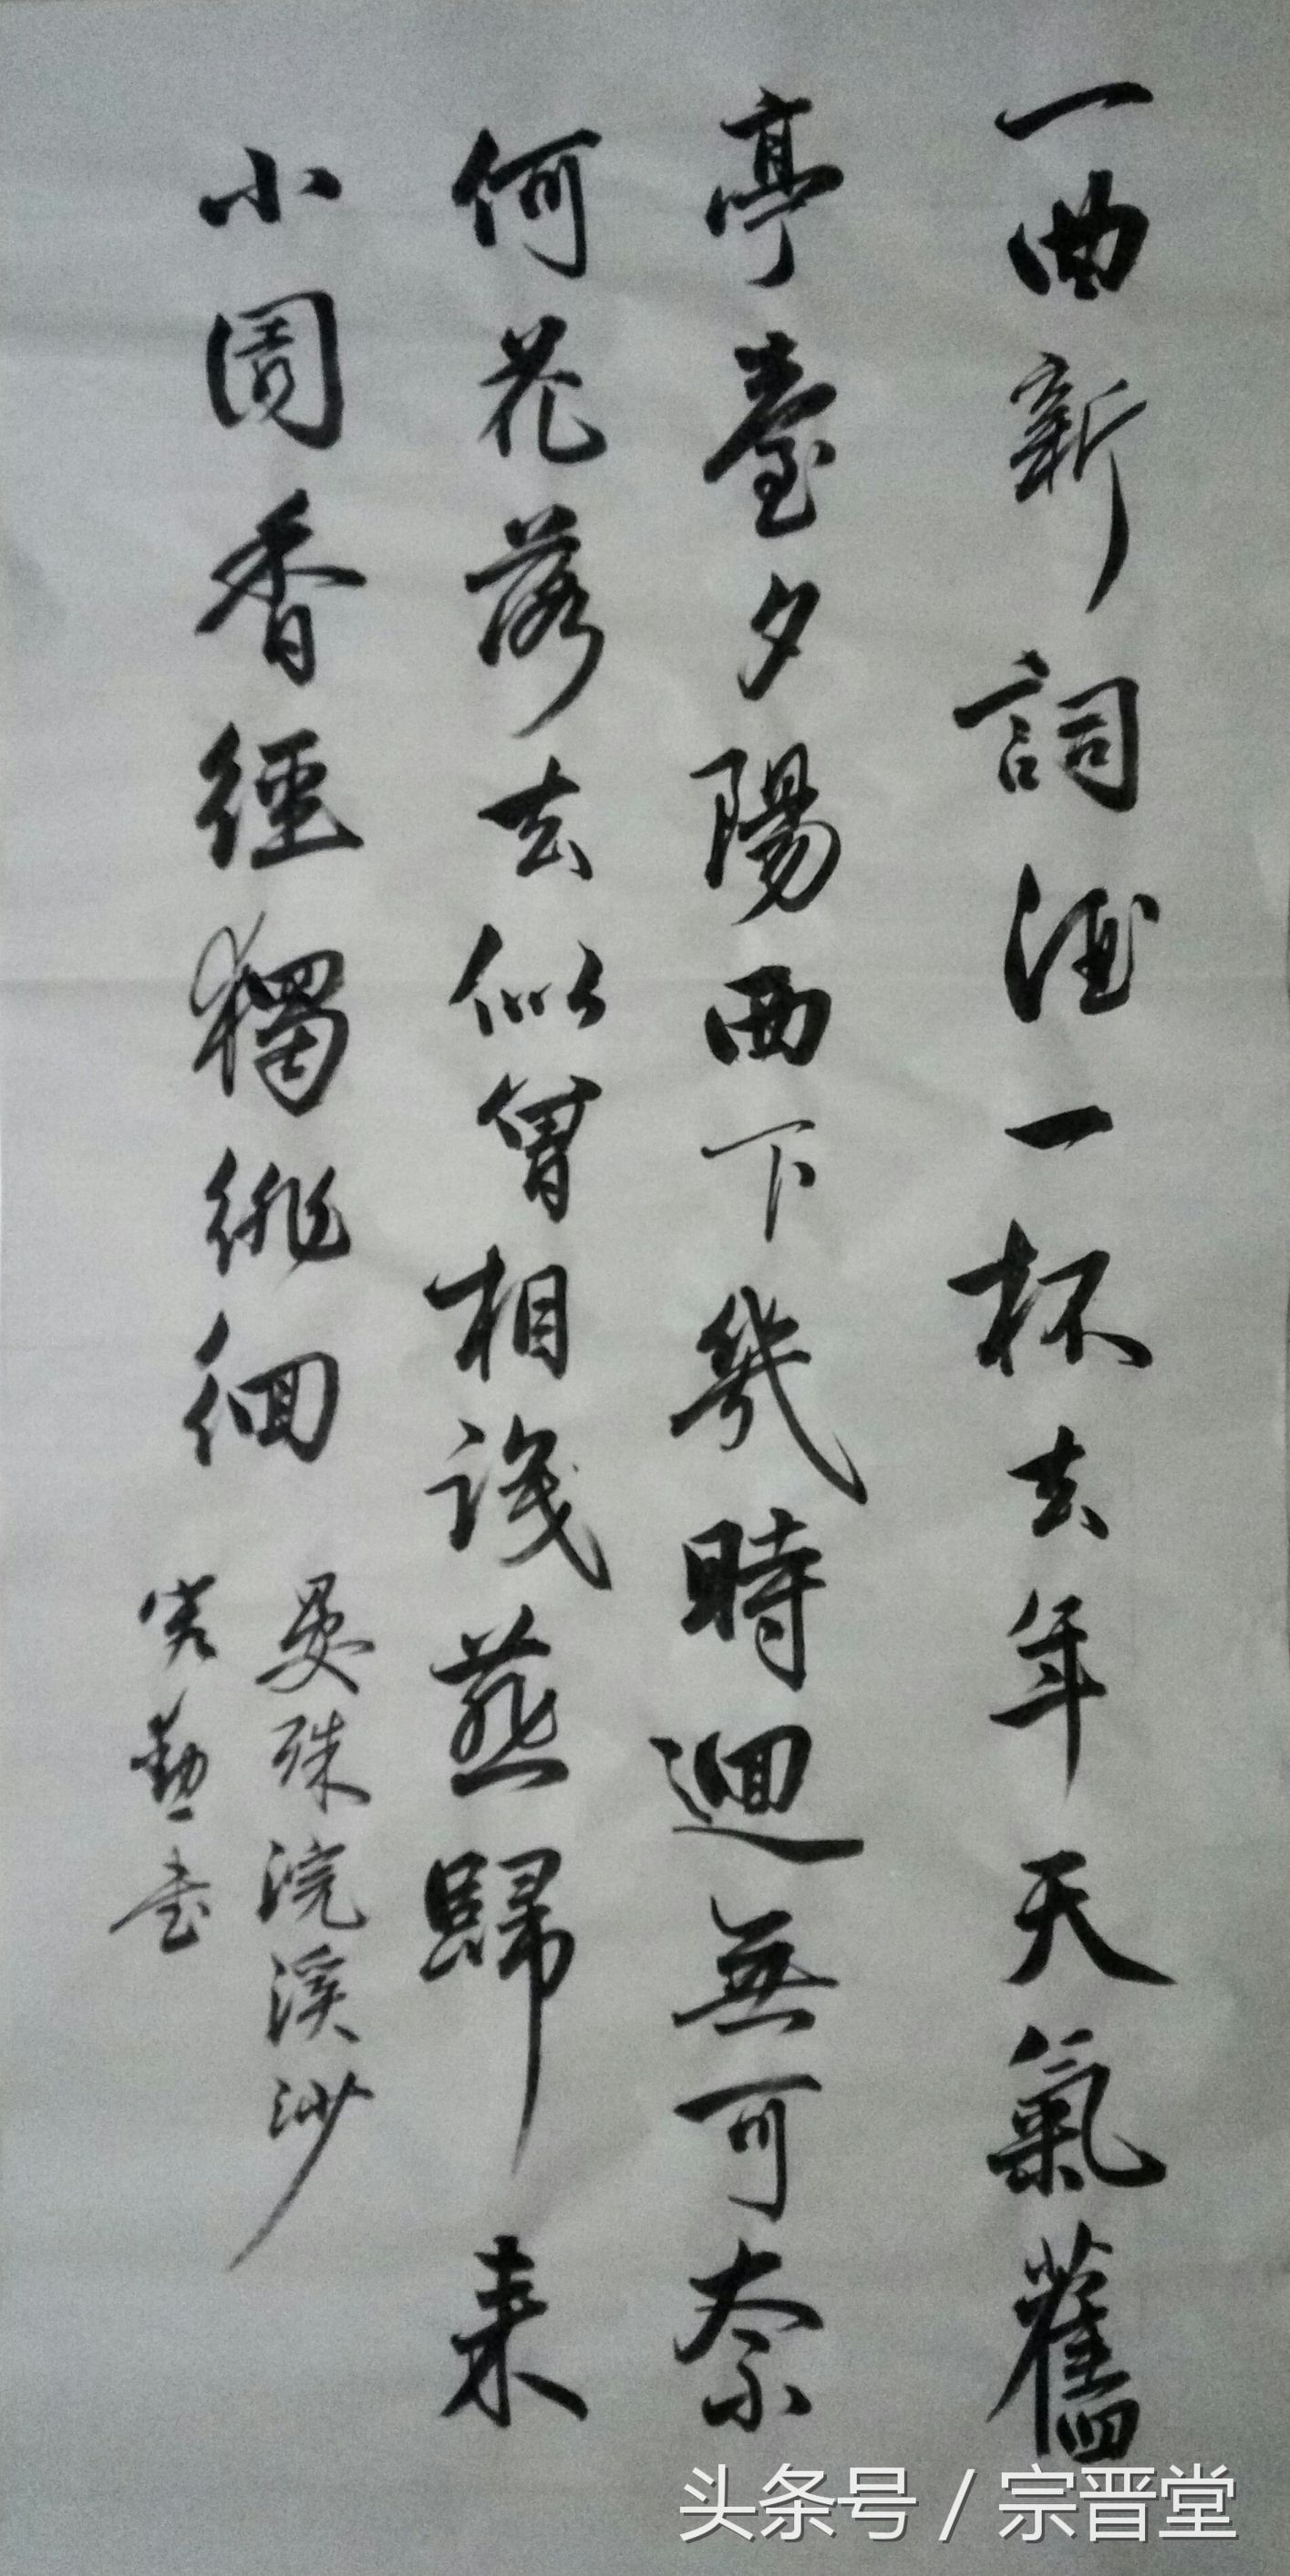 一曲新詞酒一杯去年天氣舊
亭臺夕陽西下幾時迴無可奈
何花落去似曾相識燕歸来
小園香徑獨徘徊
晏殊浣溪沙
書
头条号 / 宗晋堂